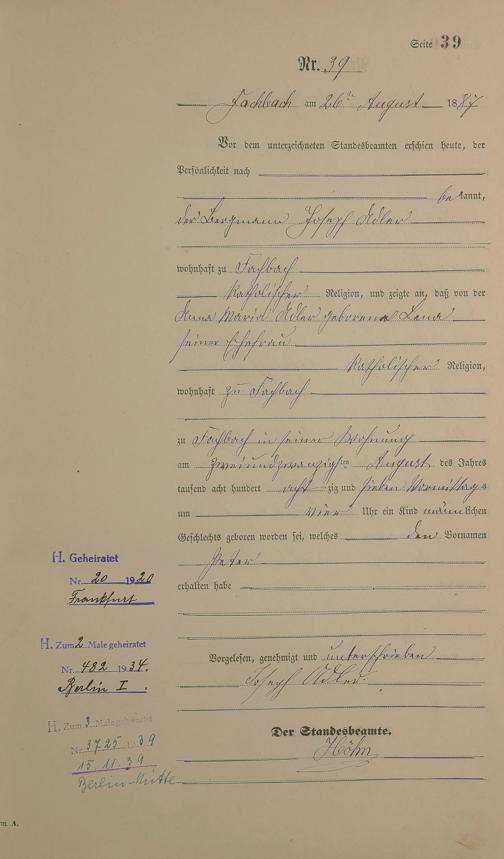 Seite 39
Nr. 39
Fachbach am 26ten August 1887
Vor dem unterzeichneten Standesbeamten erschien heute, der
Persönlichkeit nach
bekannt,
der Bergmann Joseph Adler
wohnhaft zu Fachbach
katholischer Religion, und zeigte an, daß von der
Anna Maria Adler geborene Lena
seiner Ehefrau
katholischer Religion,
wohnhaft zu Fachbach
zu Fachbach in seiner Wohnung
am zweiundzwanzigsten August des Jahres
tausend acht hundert achtzig und sieben Vormittags
um vier Uhr ein Kind männlichen
Geschlechts geboren worden sei, welches den Vornamen
Peter
erhalten habe
H. Geheiratet
Nr. 20 1920
Frankfurt
H. Zum 2 Male geheiratet
Nr. 482 1934.
Berlin I.
H. Zum 3 Male geheiratet
Nr. 3725 1939
15.11.39
Berlin-Mitte
Vorgelesen, genehmigt und unterschrieben
Joseph Adler.
Der Standesbeamte.
Höhn
m. A.